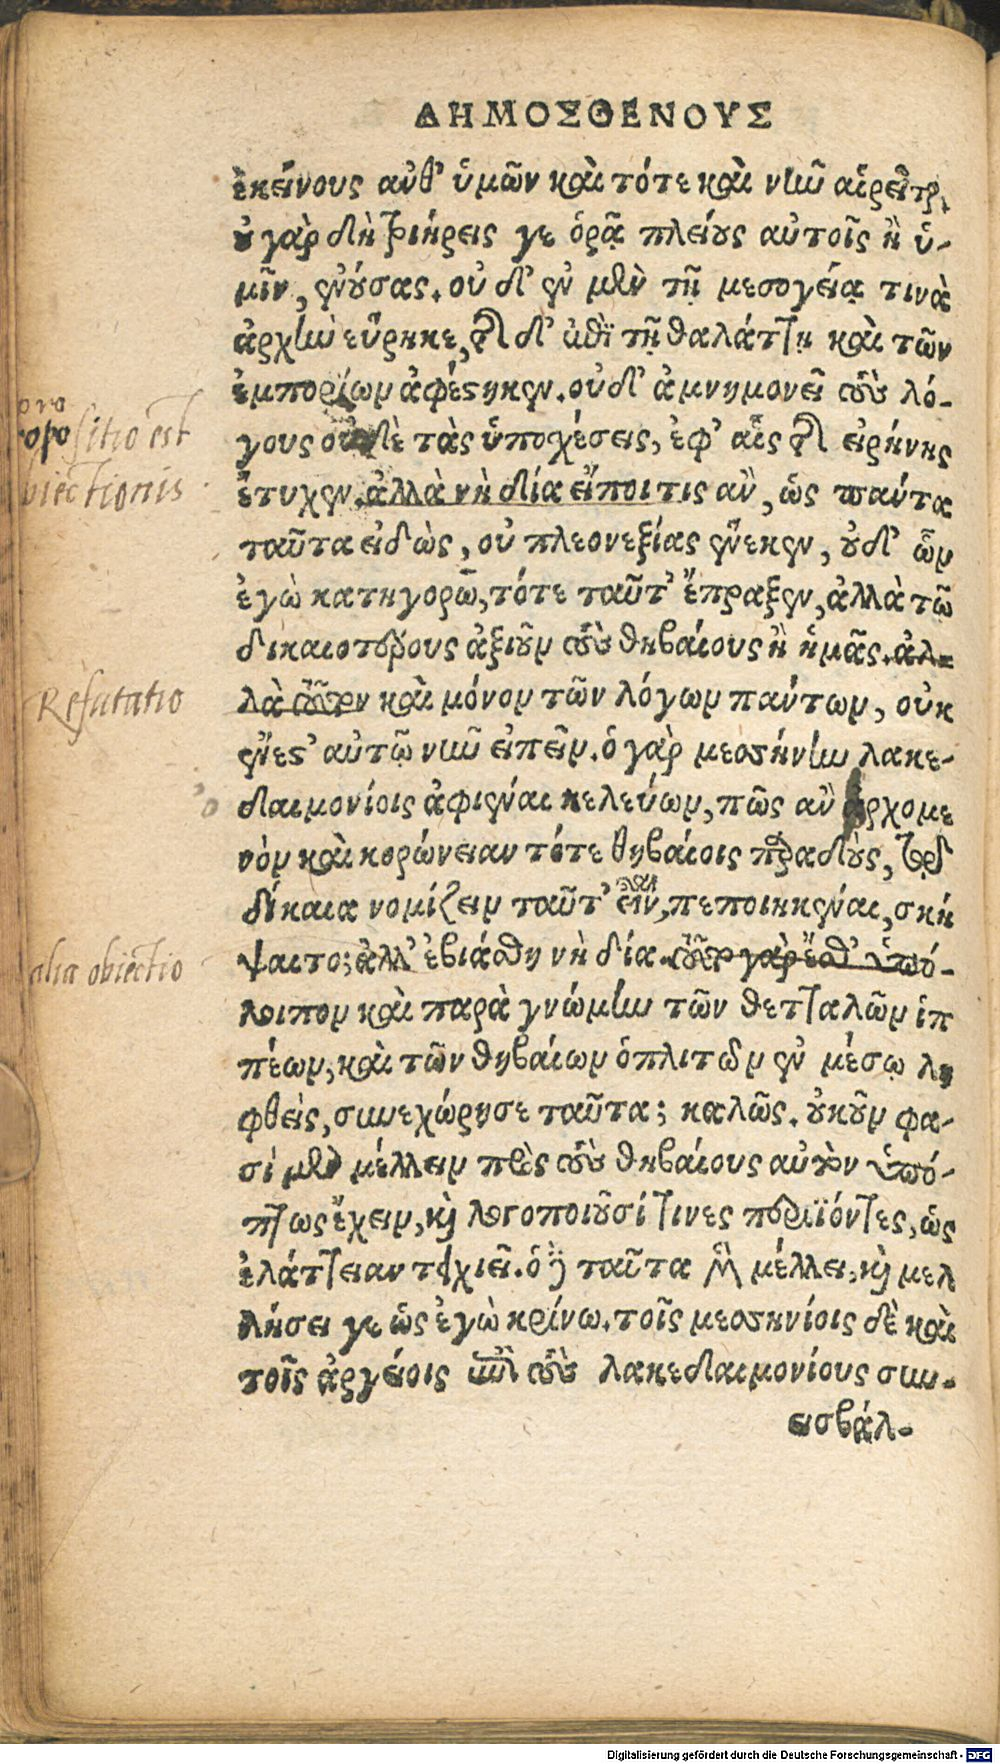 ΔΗΜΟΣΘΕΝΟΥΣ
ἐκείνους ἀνθ' ὑμῶν καὶ τότε καὶ νῦν αἱρεῖται.
οὐ γὰρ δὴ τριήρεις γε ὁρᾷ πλείους αὐτοῖς ἢ ὑ-
μῖν, ἐνούσας. οὐ δ' ἐν μὲν τῇ μεσογείᾳ τινὰ
ἀρχὴν εὕρηκε, τῆς δ' ἐπὶ τῇ θαλάττῃ καὶ τῶν
ἐμπορίων ἀφέστηκεν. οὐδ' ἀμνημονεῖ τοὺς λό-
γους οὐδὲ τὰς ὑποσχέσεις, ἐφ' αἷς τῆς εἰρήνης
ἔτυχεν. ἀλλὰ νὴ δία εἴποι τις ἂν, ὡς πάντα
ταῦτα εἰδὼς, οὐ πλεονεξίας ἕνεκεν, οὐδ' ὧν
ἐγὼ κατηγορῶ, τότε ταῦτ' ἔπραξεν, ἀλλὰ τῷ
δικαιοτέρους ἀξιοῦν τοὺς θηβαίους ἢ ἡμᾶς. ἀλ-
λὰ τοῦτον καὶ μόνον τῶν λόγων πάντων, οὐκ
ἔνεστ' αὐτῷ νῦν εἰπεῖν. ὁ γὰρ μεσσήνην λακε-
δαιμονίοις ἀφιέναι κελεύων, πῶς ἂν ὀρχομε
νὸν καὶ κορώνειαν τότε θηβαίοις παραδοὺς, τῷ
δίκαια νομίζειν ταῦτ' εἶναι, πεποιηκέναι, σκή
ψαιτο; ἀλλ' ἐβιάσθη νὴ δία. τοῦτο γὰρ ἔσθ' ὑπό-
λοιπον καὶ παρὰ γνώμην τῶν θετταλῶν ἱπ
πέων, καὶ τῶν θηβαίων ὁπλιτῶν ἐν μέσῳ λη
φθεὶς, συνεχώρησε ταῦτα; καλῶς. οὐκοῦν φα-
σὶ μὲν μέλλειν πρὸς τοὺς θηβαίους αὐτὸν ὑπό-
πτως ἔχειν, καὶ λογοποιοῦσί τινες περιϊόντες, ὡς
ἐλάτειαν τειχιεῖ. ὁ δὲ ταῦτα μὲν μέλλει, καὶ μελ
λήσει γε ὡς ἐγὼ κρίνω. τοῖς μεσσηνίοις δὲ καὶ
τοῖς ἀργείοις ἐπὶ τοὺς λακεδαιμονίους συν-
εισβάλ-
propositio est
obiectionis
Refutatio
alia obiectio
Digitalisierung gefördert durch die Deutsche Forschungsgemeinschaft - DFG